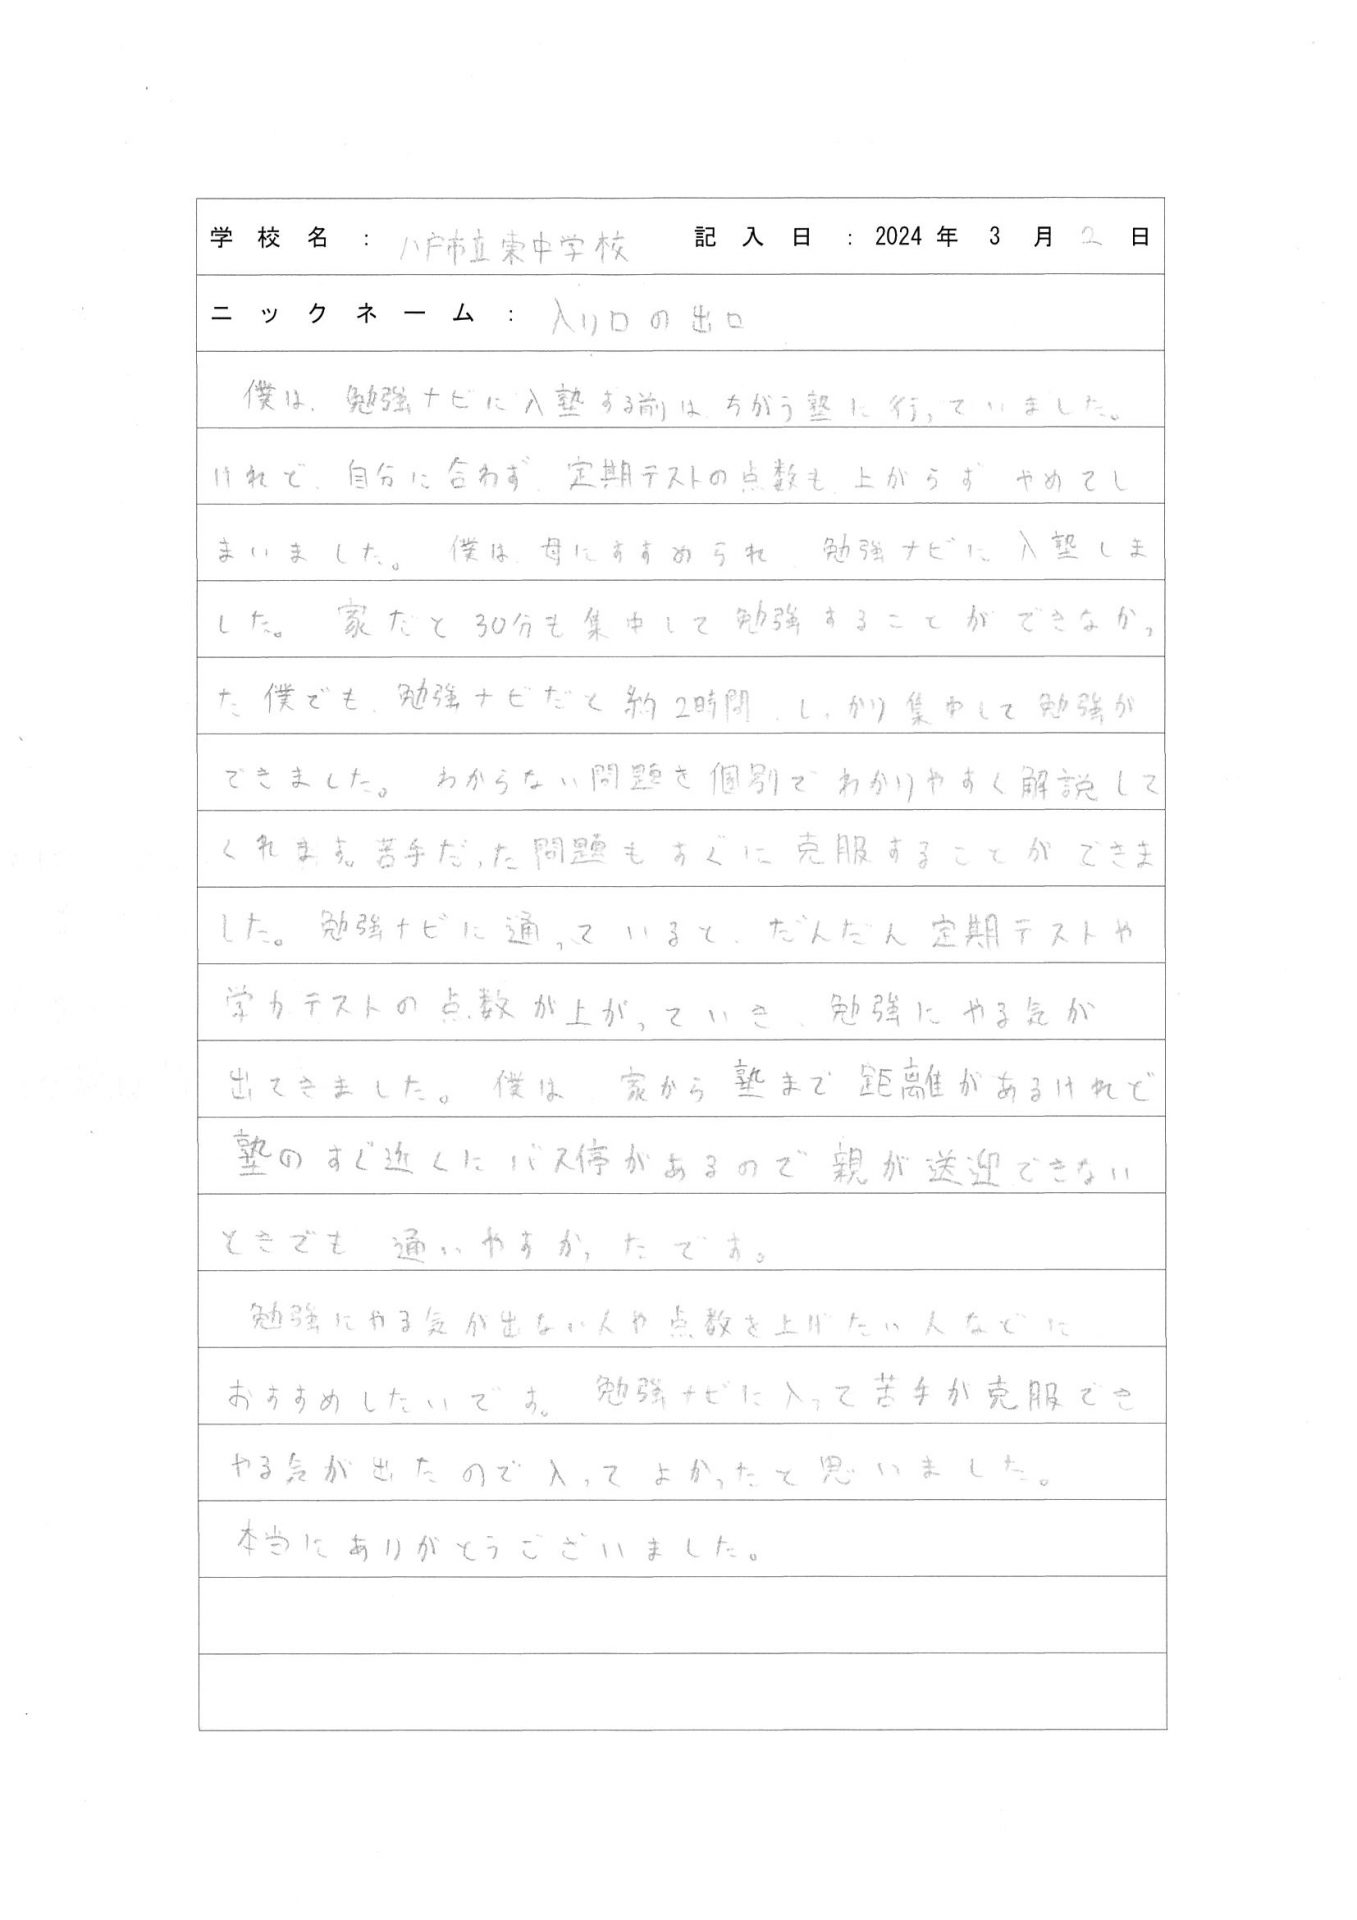 学校名：八戸市立東中学校 記入日：2024年3月2日
ニックネーム：入り口の出口
僕は、勉強ナビに入塾する前は、ちがう塾に行っていました。
けれど、自分に合わず、定期テストの点数も上がらずやめてし
まいました。僕は、母にすすめられ、勉強ナビに入塾しま
した。家だと30分も集中して勉強することができなかっ
た僕でも、勉強ナビだと約2時間、しっかり集中して勉強が
できました。わからない問題を個別でわかりやすく解説して
くれます。苦手だった問題もすぐに克服することができま
した。勉強ナビに通っていると、だんだん定期テストや
学力テストの点数が上がっていき、勉強にやる気が
出てきました。僕は、家から塾まで距離があるけれど
塾のすぐ近くにバス停があるので親が送迎できない
ときでも通いやすかったです。
勉強にやる気が出ない人や点数を上げたい人などに
おすすめしたいです。勉強ナビに入って苦手が克服でき
やる気が出たので入ってよかったと思いました。
本当にありがとうございました。